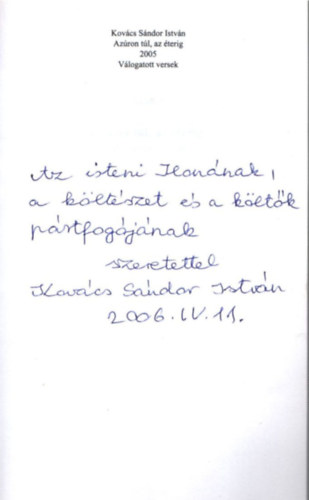 Kovács Sándor István
Azúron túl, az éterig
2005
Válogatott versek
Az isteni Ilonának,
a költészet és a költők
pártfogójának
szeretettel
Kovács Sándor István
2006.IV.11.